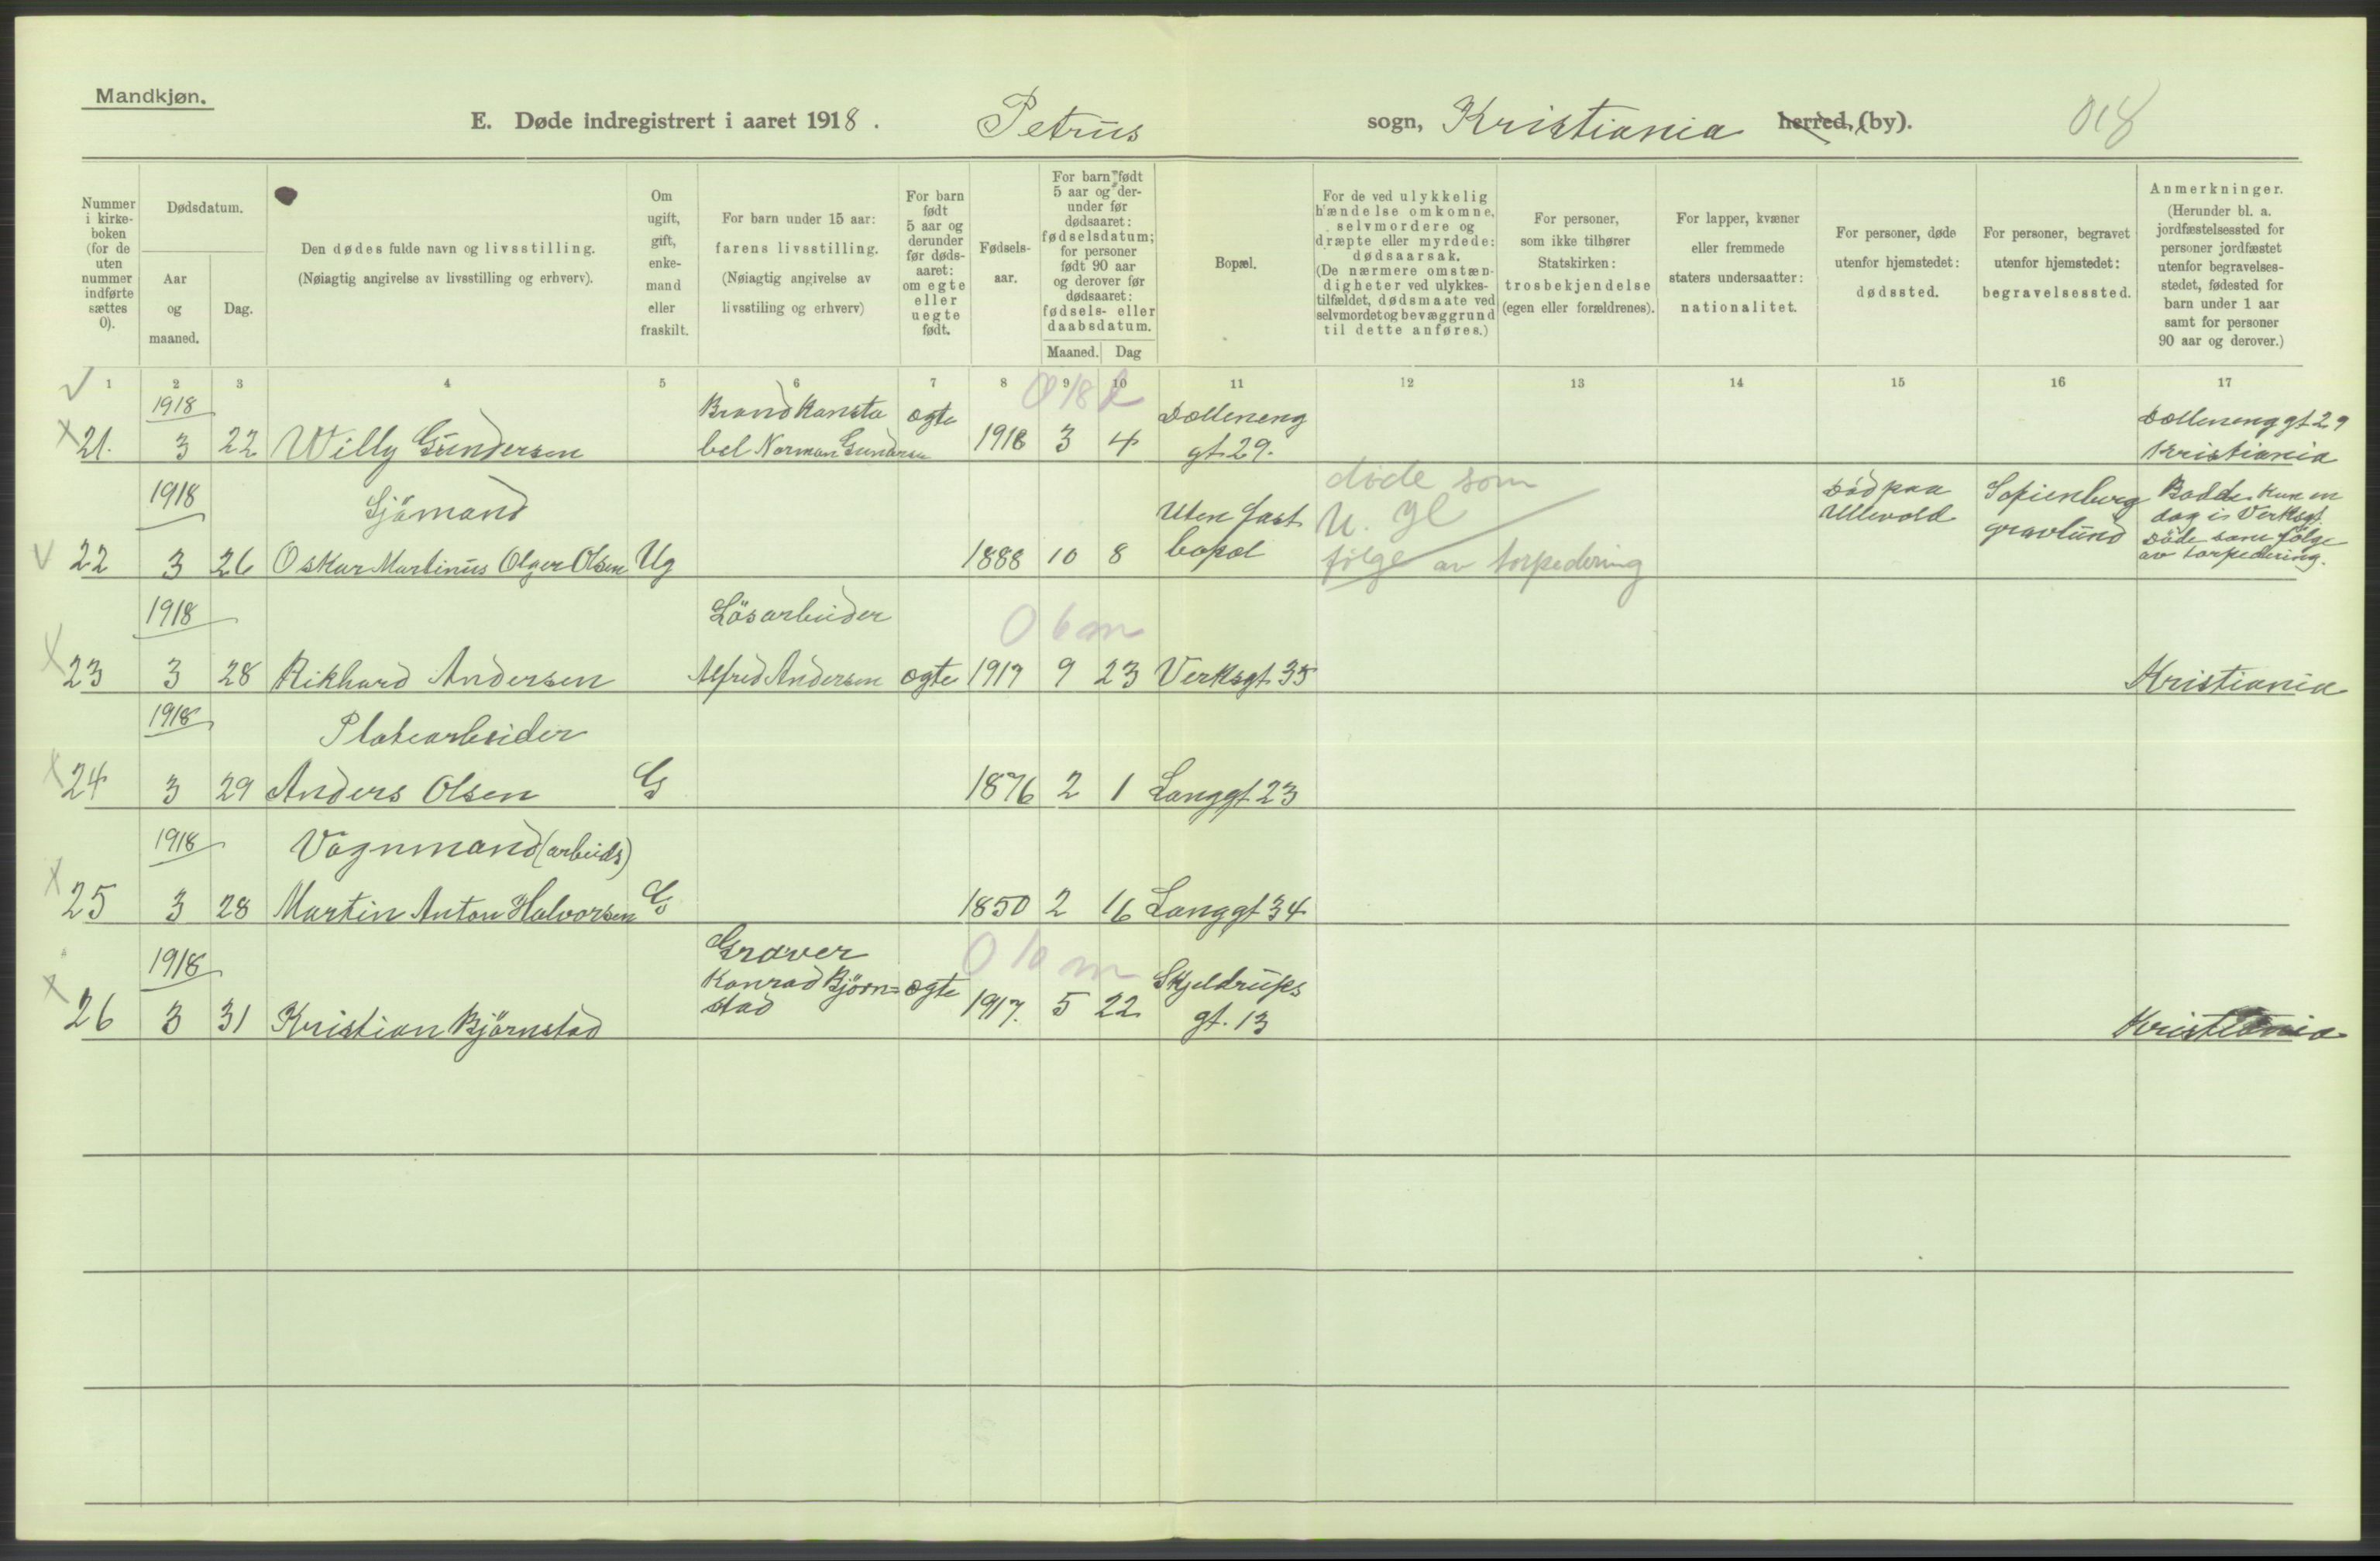 Mandkjøn.
E. Døde indregistrert i aaret 1918. Petrus sogn, Kristiania herred, (by). 018
Nummer i kirkeboken (for de uten nummer indførte sættes 0).
Dødsdatum.
Aar og maaned.
Dag.
Den dødes fulde navn og livsstilling.
(Nøiagtig angivelse av livsstilling og erhverv).
Om ugift, gift, enkemand eller fraskilt.
For barn under 15 aar: farens livsstilling.
(Nøiagtig angivelse av livsstiling og erhverv)
For barn født 5 aar og derunder før dødsaaret: om egte eller uegte født.
Fødselsaar.
For barn født 5 aar og derunder før dødsaaret: fødselsdatum; for personer født 90 aar og derover før dødsaaret: fødsels- eller daabsdatum.
Maaned. Dag
Bopæl.
For de ved ulykkelig hændelse omkomne, selvmordere og dræpte eller myrdede: dødsaarsak.
(De nærmere omstændigheter ved ulykkestilfældet, dødsmaate ved selvmordet og bevæggrund til dette anføres.)
For personer, som ikke tilhører Statskirken: trosbekjendelse (egen eller forældrenes).
For lapper, kvæner eller fremmede staters undersaatter: nationalitet.
For personer, døde utenfor hjemstedet: dødssted.
For personer, begravet utenfor hjemstedet: begravelsessted.
Anmerkninger.
(Herunder bl. a. jordfæstelsessted for personer jordfæstet utenfor begravelsesstedet, fødested for barn under 1 aar samt for personer 90 aar og derover.)
1 2 3 4 5 6 7 8 9 10 11 12 13 14 15 16 17
1918 Brandkonsta ægte 018 Dælleneng Dællenenggt 29
21. 3 22 Willy Gundersen bel Norman Gundersen 1918 3 4 gt. 29. Kristiania
1918 Sjömand Uten fast døde som U. gl Död paa Ullevold Sofienberg gravlund Bodde kun en dag i Verksgt.
22 3 26 Oskar Martinus Olger Olsen Ug 1888 10 8 bopæl følge av torpedering Döde som følge av torpedering.
1918 Løsarbeider 0 6 m
23 3 28 Rikhard Andersen Alfred Andersen ægte 1917 9 23 Verksgt. 35 Kristiania
1918 Platearbeider
24 3 29 Anders Olsen G 1876 2 1 Langgt 23
1918 Vognmand (arbeids)
25 3 28 Martin Anton Halvorsen G 1850 2 16 Langgt 34
1918 Graver 0 10 m Skjeldrups
26 3 31 Kristian Björnstad Konrad Bjørn=stad ægte 1917. 5 22 gt. 13 Kristiania